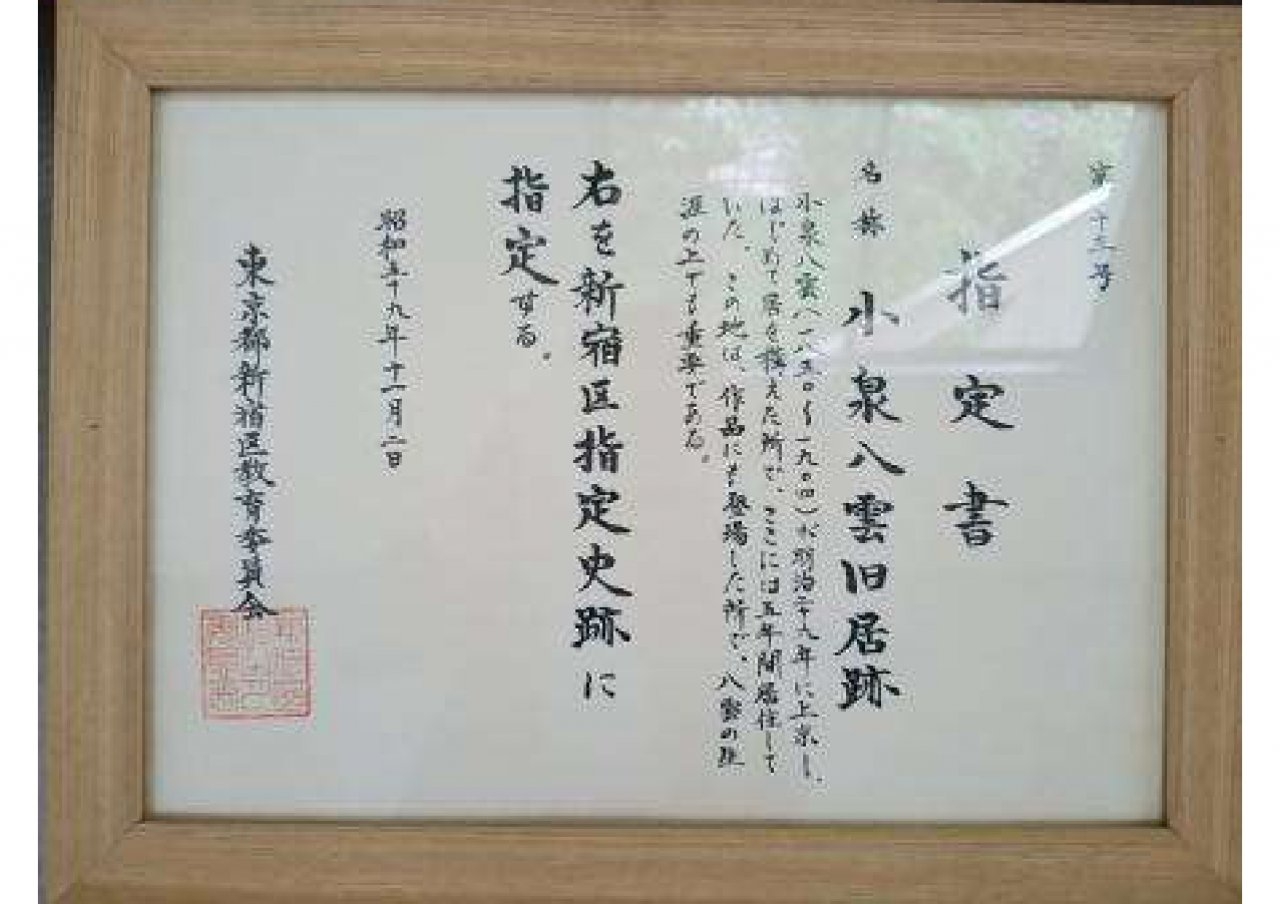 十三号
指定書
名称 小泉八雲旧居跡
小泉八雲(一八五〇〜一九〇四)が明治二十九年に上京し、
はじめて居を構えた所で、ここには五年間居住して
いた。この地は、作品にも登場した所で、八雲の生
涯の上でも重要である。
右を新宿区指定史跡に
指定する。
昭和五十九年十一月二日
東京都新宿区教育委員会